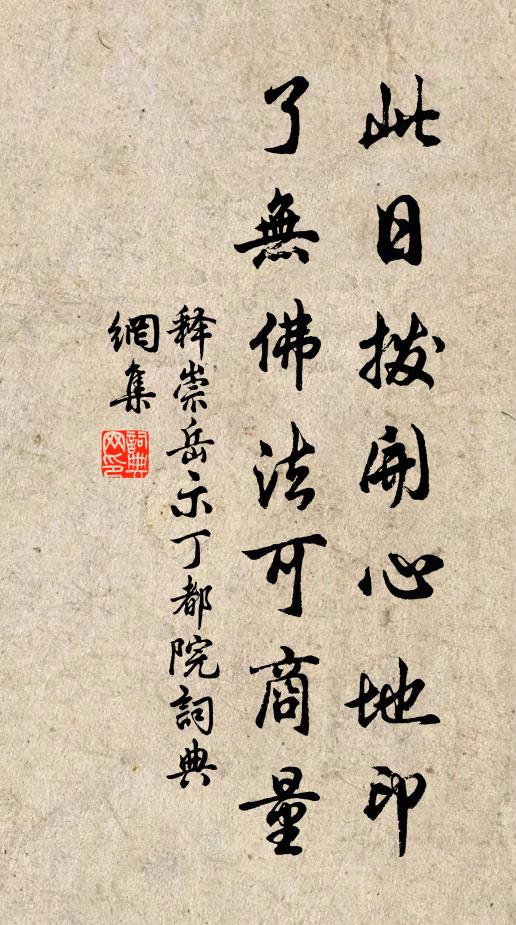 此日拨開心地印
了無佛法可商量
释崇岳示丁都院詞典
網集
詞典
网印